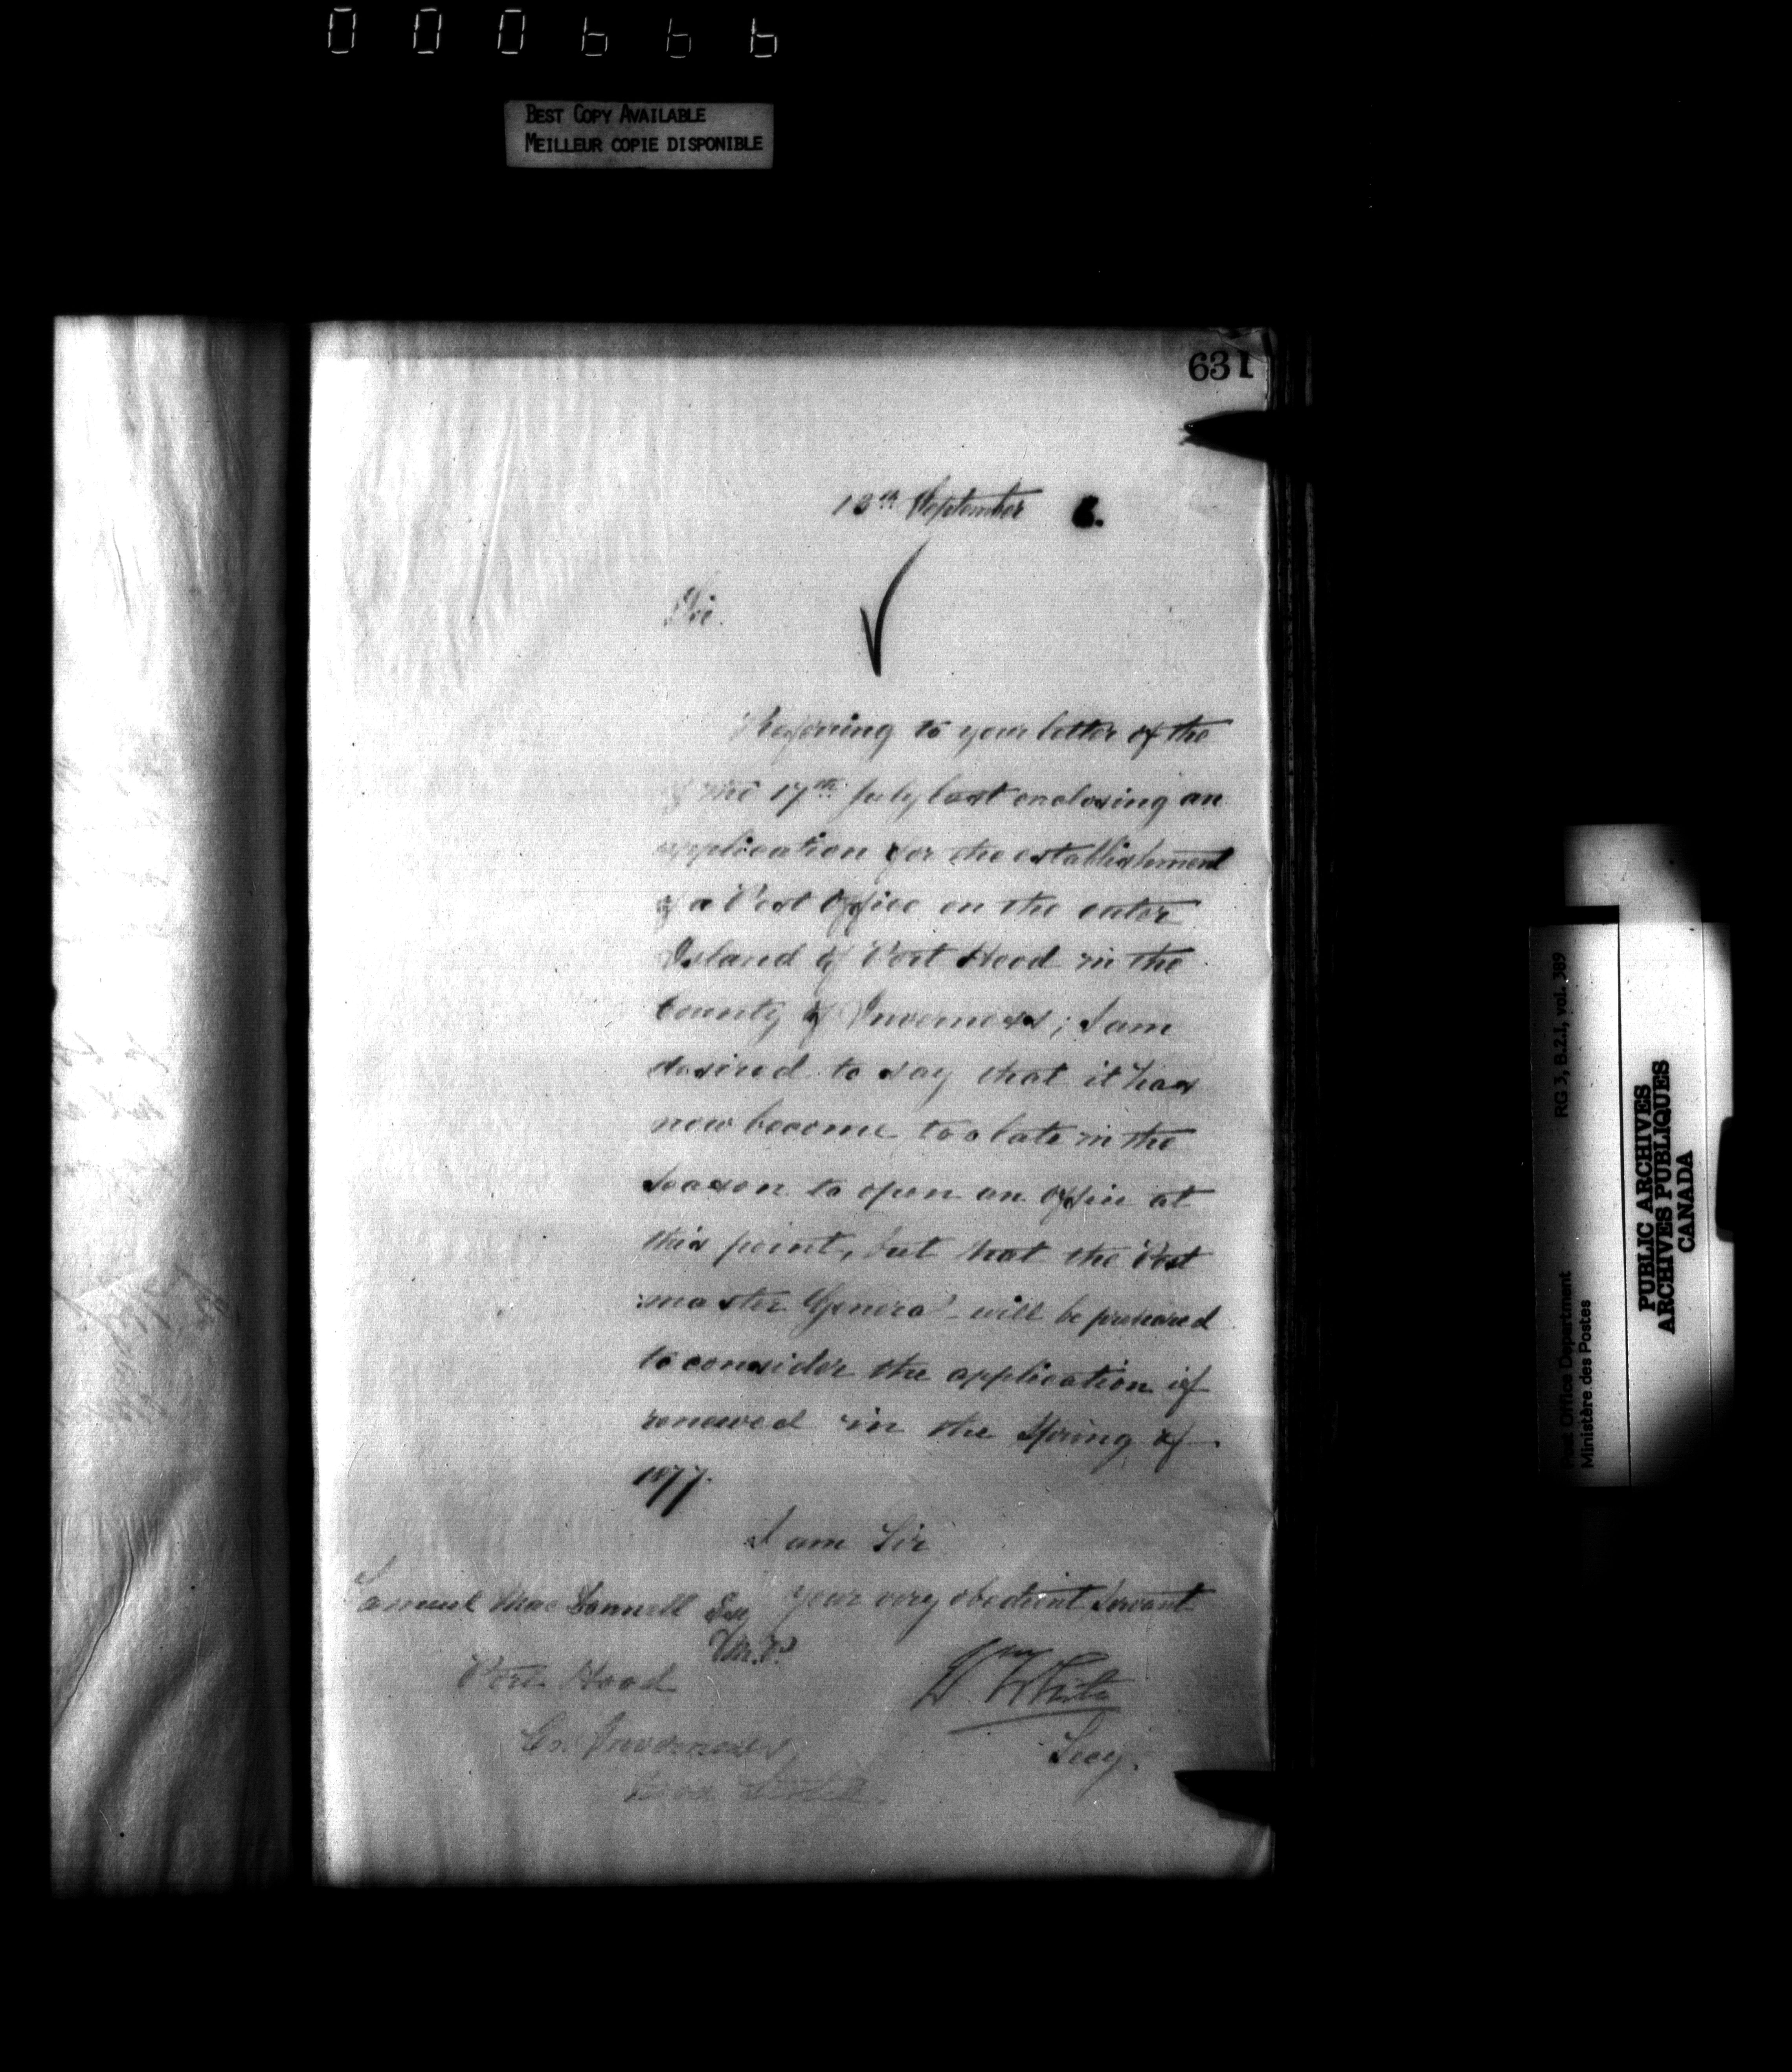 000666
BEST COPY AVAILABLE
MEILLEUR COPIE DISPONIBLE
631
13th September 6.
Sir.
Referring to your letter of the
of the 17th July last enclosing an
application for the establishment
of a Post Office on the outer
Island of Port Hood in the
County of Inverness; I am
desired to say that it has
now become too late in the
season to open an office at
this point, but that the Post
master General will be prepared
to consider the application if
renewed in the Spring of
1877.
I am Sir
your very obedient Servant
Samuel MacDonnell Esq
M.P.
Port Hood
Co. Inverness,
Nova Scotia.
Wm White
Secy.
RG 3, B.2.I, vol. 389
Post Office Department
Ministère des Postes
PUBLIC ARCHIVES
ARCHIVES PUBLIQUES
CANADA